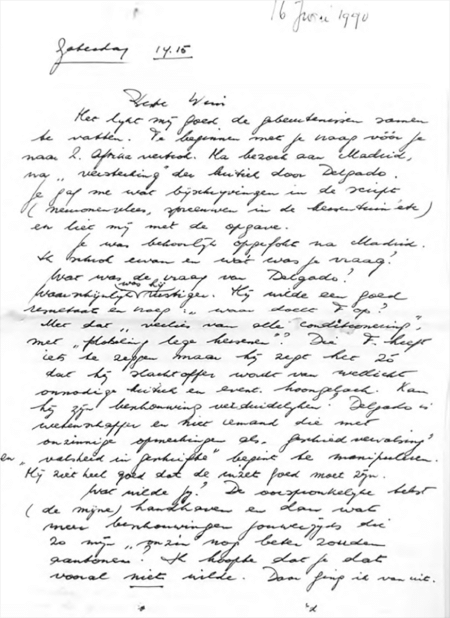 16 Juni 1990
Zaterdag 14.15
Beste Wim
Het lijkt mij goed de gebeurtenissen samen
te vatten. Te beginnen met je vraag vóór je
naar Z. Afrika vertrok. Na bezoek aan Madrid,
na „versterking der kritiek door Delgado.
Je gaf me wat bijschrijvingen in de script
(mensenvlees, spreeuwen in de kersentuin etc)
en liet mij met de opgave.
Je was behoorlijk opgefokt na Madrid.
Ik schrok ervan en wat was je vraag?
Wat was de vraag van Delgado?
Waarschijnlijk was hij rustiger. Hij wilde een goed
resultaat en vroeg: „waar doelt F op?"
Met dat „verlies van alle conditionering",
met „plotseling lege hersenen"? Die F. heeft
iets te zeggen maar hij zegt het zó
dat hij slachtoffer wordt van wellicht
onnodige kritiek en event. hoongelach. Kan
hij zijn beschouwing verduidelijken? Delgado is
wetenschapper en niet iemand die met
onzinnige opmerkingen als „geschiedvervalsing"
en „valsheid in geschrifte" begint te manipuleren.
Hij ziet heel goed dat de inzet goed moet zijn.
Wat wilde jij? De oorspronkelijke tekst
(de mijne) handhaven en dan wat
meer beschouwingen jouwerzijds die
zo mijn „onzin nog beter zouden
aantonen. Ik hoopte dat je dat
vooral niet wilde. Daar ging ik van uit.